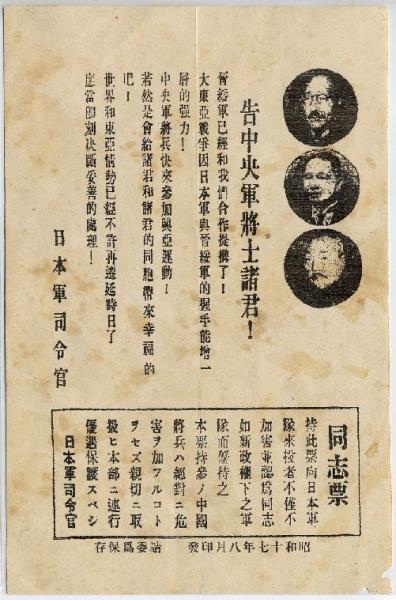 告中央軍將士諸君！
晉綏軍已經和我們合作提攜了！
大東亞戰爭因日本軍與晉綏軍的握手能增一
層的强力！
中央軍將兵快來參加興亞運動！
若然是會給諸君和諸君的同胞帶來幸福的
吧！
世界和東亞情勢已經不許再遷延時日了
應當即刻決斷妥善的處理！
日本軍司令官
同志票
持此票向日本軍
隊來投者不僅不
加害並認爲同志
如新政權下之軍
隊而優待之
本票持參ノ中國
將兵ハ絕對ニ危
害ヲ加フルコト
ヲセズ親切ニ取
扱ヒ本部ニ連行
優遇保護スベシ
日本軍司令官
昭和十七年八月印發
請妥爲保存